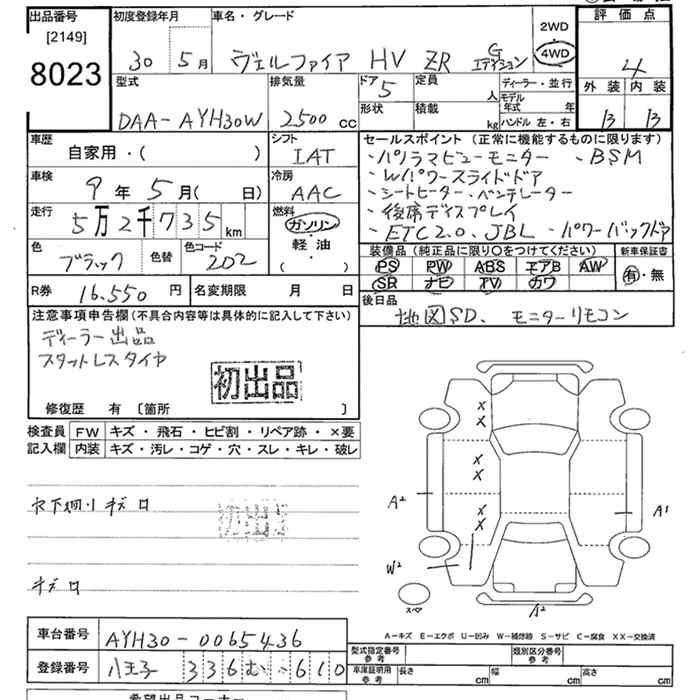 出品番号
[2149]
8023
初度登録年月
30 5月
車名・グレード
ヴェルファイア HV ZR Gエディション
2WD
4WD
評価点
4
外装 内装
B B
型式
DAA-AYH30W
排気量
2500 cc
ドア
5
形状
定員
人
積載
kg
ディーラー・並行
モデル年式 年
ハンドル 左・右
車歴
自家用・( )
シフト
IAT
車検
9年5月( 日)
冷房
AAC
走行
5万2千735km
燃料
ガソリン
軽油
( )
色
ブラック
色替
色コード
202
セールスポイント (正常に機能するものに限ります)
・パノラマビューモニター ・BSM
・Wパワースライドドア
・シートヒーター・ベンチレーター
・後席ディスプレイ
・ETC2.0、JBL ・パワーバックドア
装備品 (純正品に限り○をつけてください)
PS PW ABS エアB AW
SR ナビ TV カワ
新車保証書
有・無
R券 16.550円
名変期限 月 日
後日品
地図SD、モニターリモコン
注意事項申告欄(不具合内容等は具体的に記入して下さい)
ディーラー出品
スタットレスタイヤ
初出品
修復歴 有 〔箇所 〕
検査員記入欄
FW キズ・飛石・ヒビ割・リペア跡・×要
内装 キズ・汚レ・コゲ・穴・スレ・キレ・破レ
初出品
キズ ロ
X
X
X
X
X
X
A²
A1
W²
スペア
A²
A-キズ E-エクボ U-凹み W-補修跡 S-サビ C-腐食 XX-交換済
車台番号
AYH30-0065436
登録番号
八王子 336 む ・610
型式指定番号
参考
類別区分番号
参考
車庫証明用
参考
長さ cm
幅 cm
高さ cm
希望出品コーナー